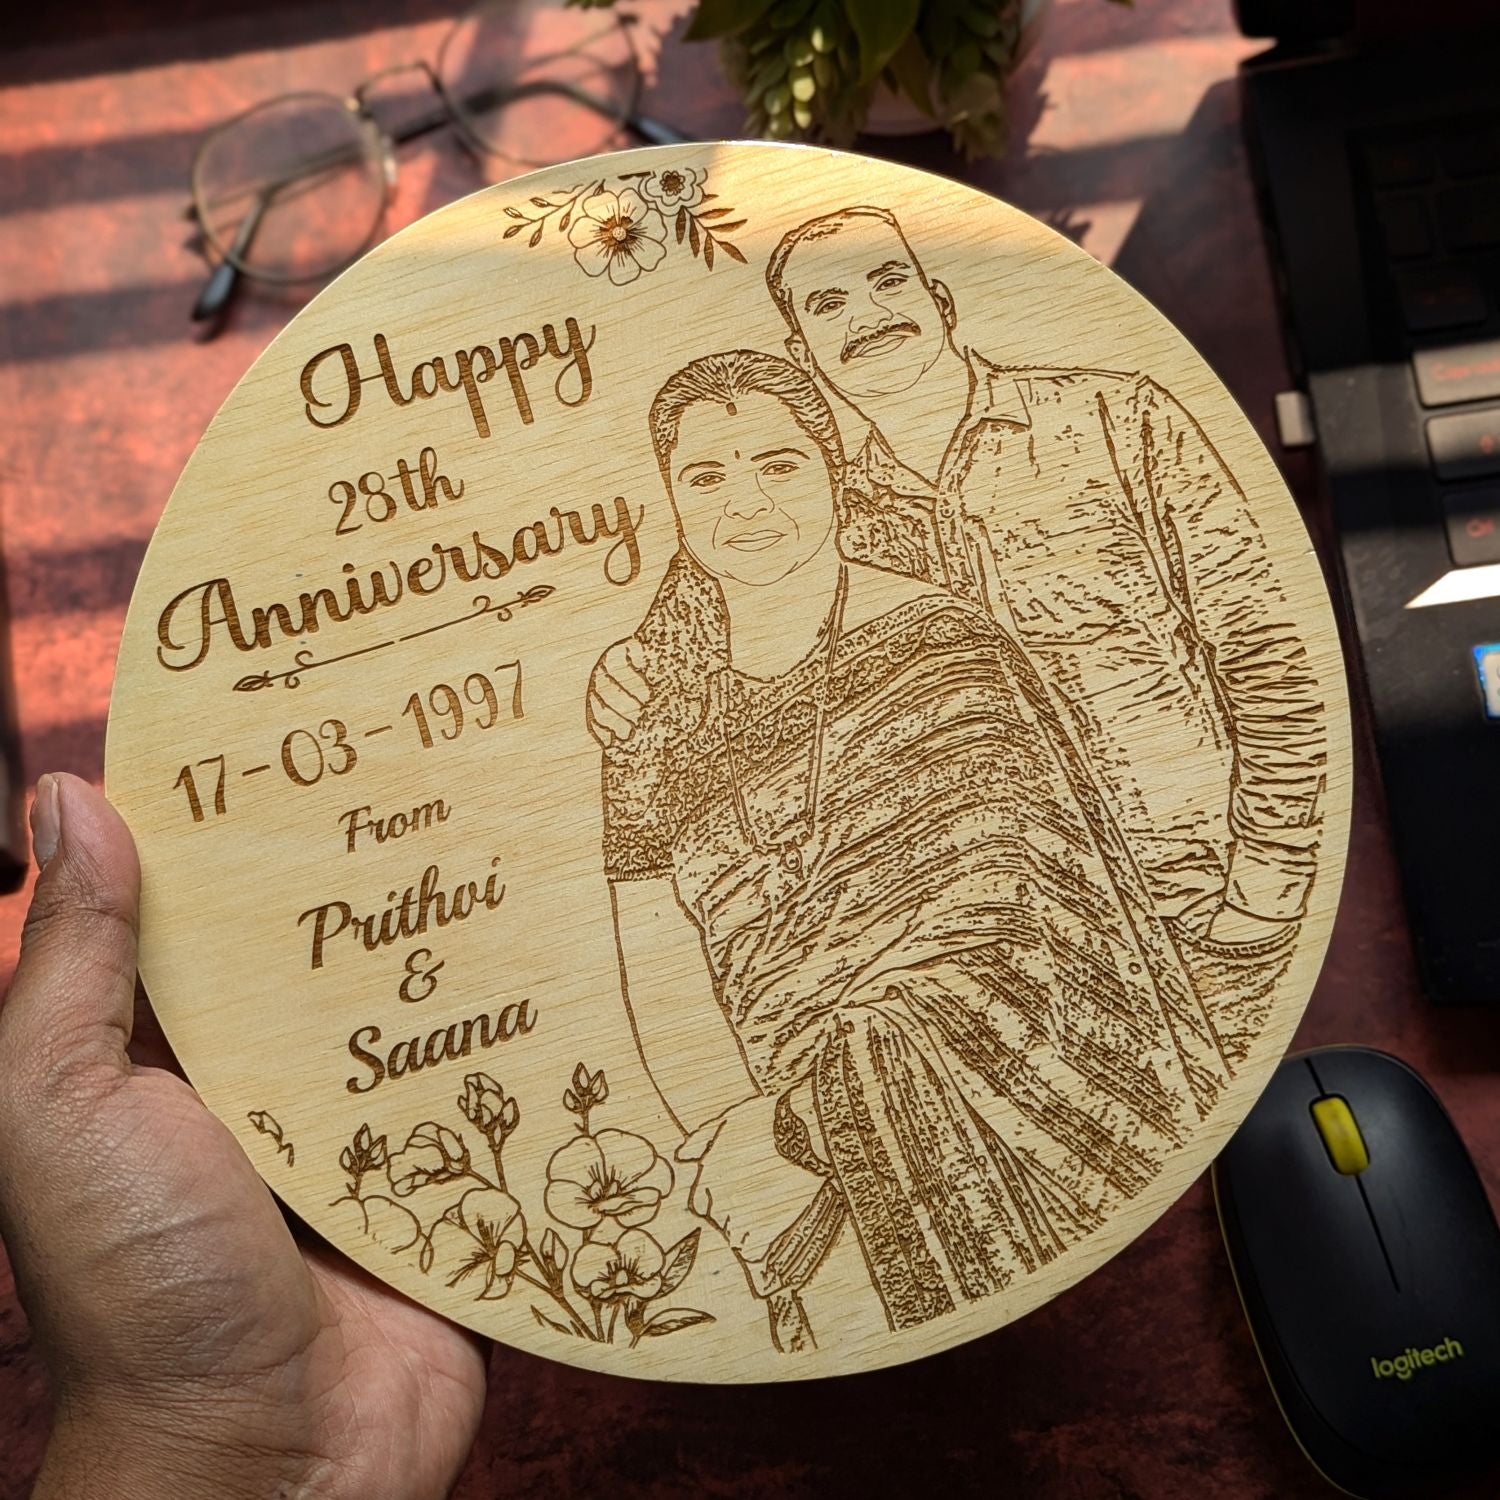 Happy
28th
Anniversary
17-03-1997
From
Prithvi
&
Saana
logitech